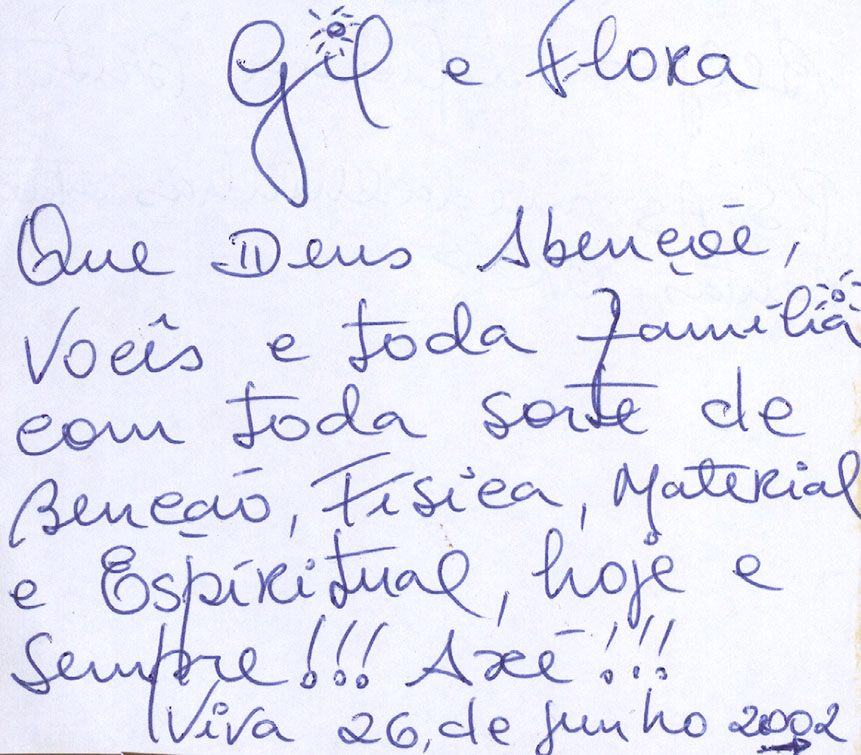 Gil e Flora
Que Deus Abençõe,
Vocês e toda família
com toda sorte de
Benção, Física, Material
e Espíritual, hoje e
Sempre!!! Axé!!!
Viva 26, de junho 2002